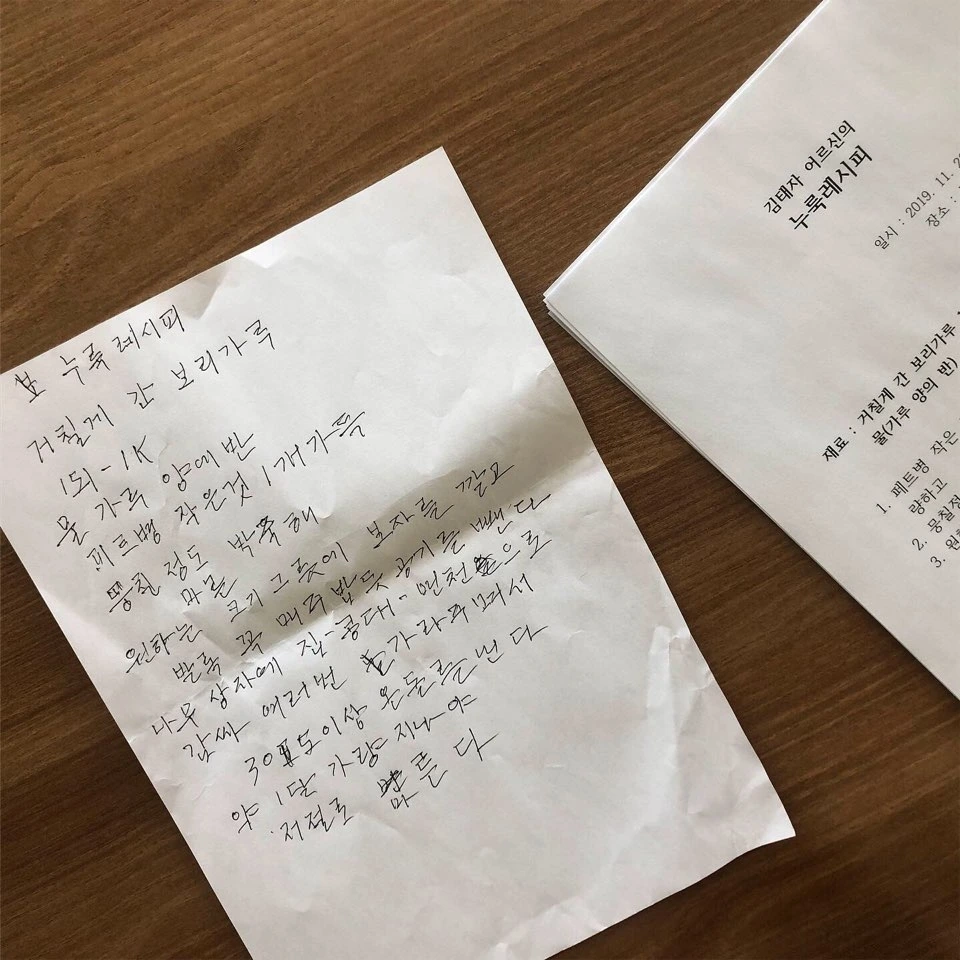 누룩 레시피
거칠게 간 보리가루
1회-1K
물 가루 양에반
피트병 작은것 1개가득
뭉칠 정도 박죽해
원하는 크기 그릇에 보자를 깔고
발로 꼭 매주밥듯 공기를 뺀다
나무 상자에 짚-콩대-면천으로
감싸 여러번 가라주며서
30도이상 온돌를넌다
약 1달 가량 지나야
저절로 마른다
김태자 어르신의
누룩레시피
일시 : 2019. 11. 2
장소 :
재료 : 거칠게 간 보리가루
물(가루 양의 반)
1. 페트병 작은
량하고
2. 뭉칠정
3. 원